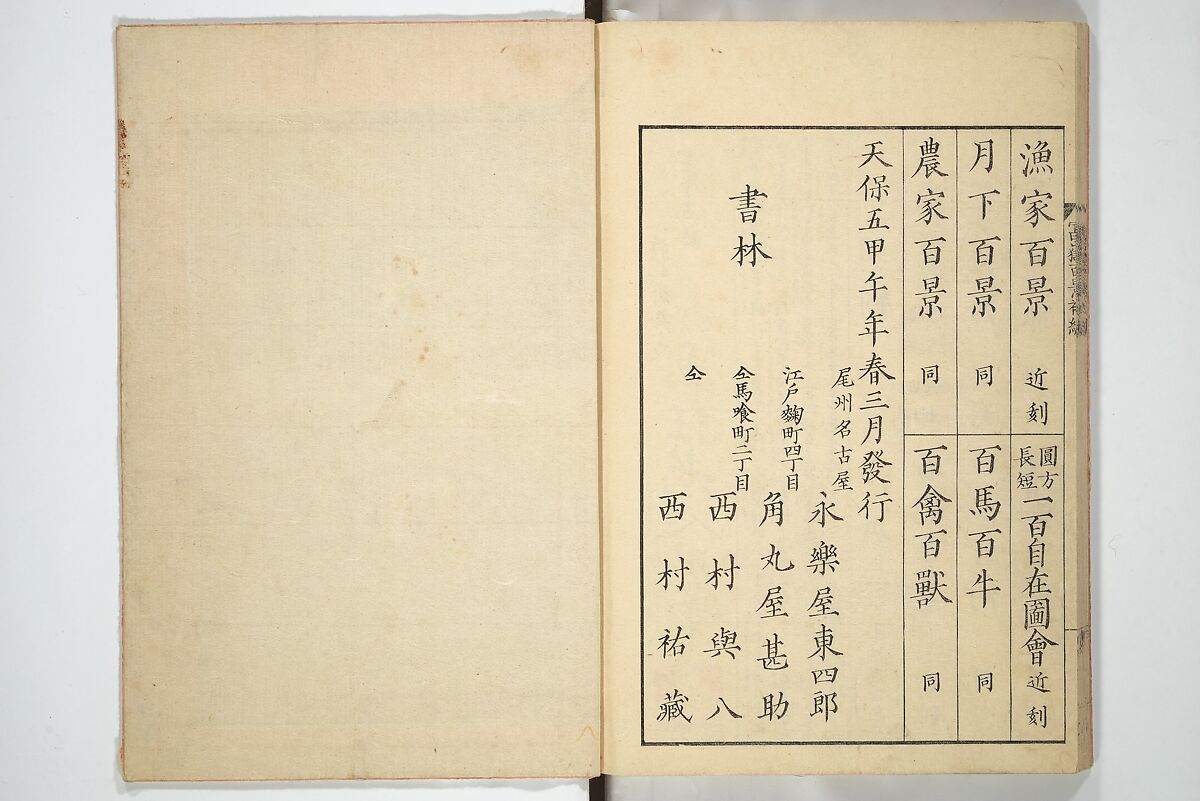 漁家百景 近刻
圓方長短 一百自在圖會 近刻
月下百景 同
百馬百牛 同
農家百景 同
百禽百獸 同
天保五甲午年春三月發行
尾州名古屋 永樂屋東四郎
江戸麴町四丁目 角丸屋甚助
書林
仝馬喰町二丁目 西村與八
仝 西村祐藏